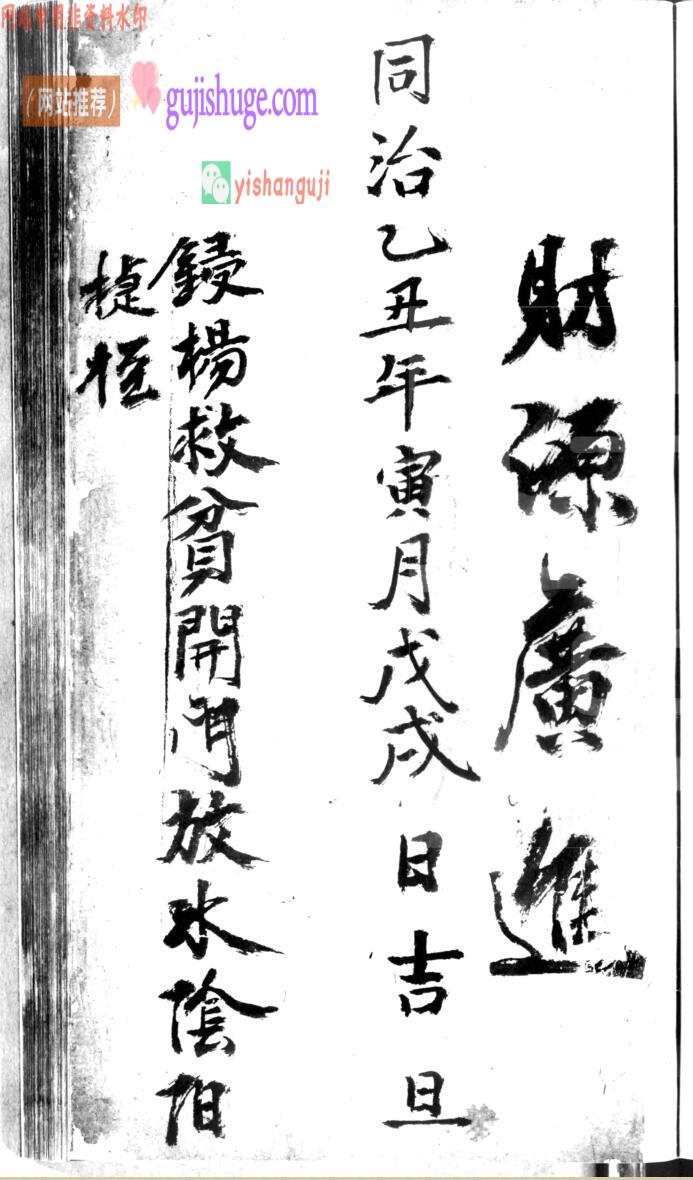 网站专用非资料水印
（网站推荐） gujishuge.com
yishanguji
財源廣進
同治乙丑年寅月戊戌日吉旦
鋟楊救貧開門放水陰阳
捷徑